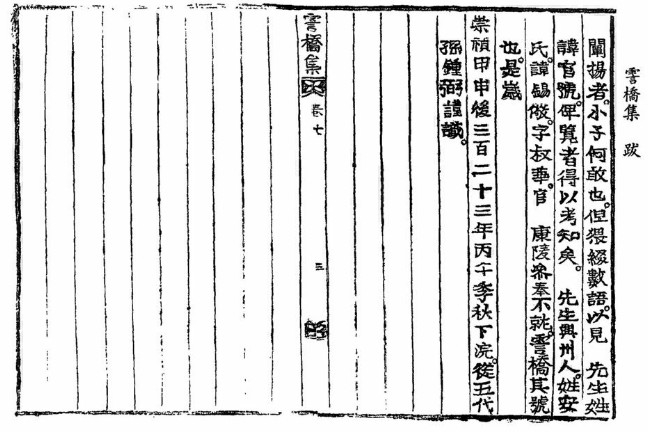 霅橋集 跋
闡揚者。小子何敢也。但猥綴數語。以見 先生姓
諱官號。俾覽者得以考知矣。 先生興州人。姓安
氏。諱錫儆。字叔華。官 康陵參奉不就。霅橋其號
也。是歲
崇禎甲申後三百二十三年丙午季秋下浣。從五代
孫鍾弼謹識。
霅橋集 卷七 三